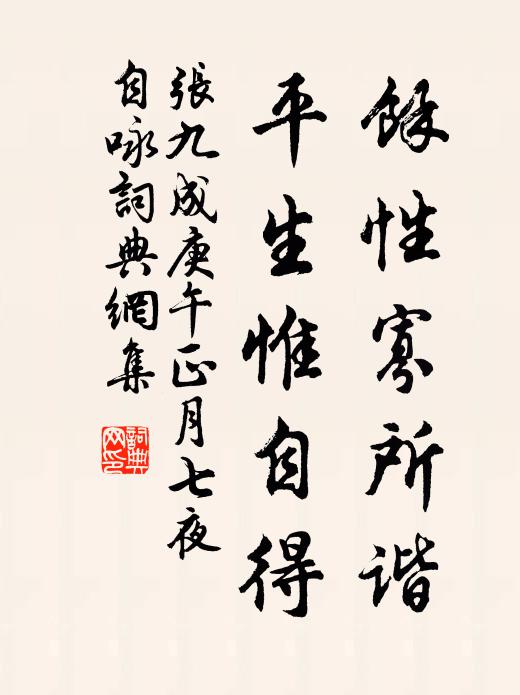 餘性寡所諧
平生惟自得
張九成庚午正月七夜
自咏詞典網集
詞典網印